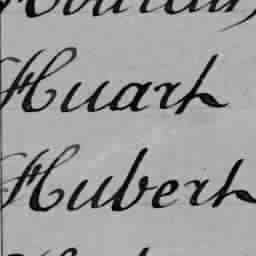 Huart
Hubert